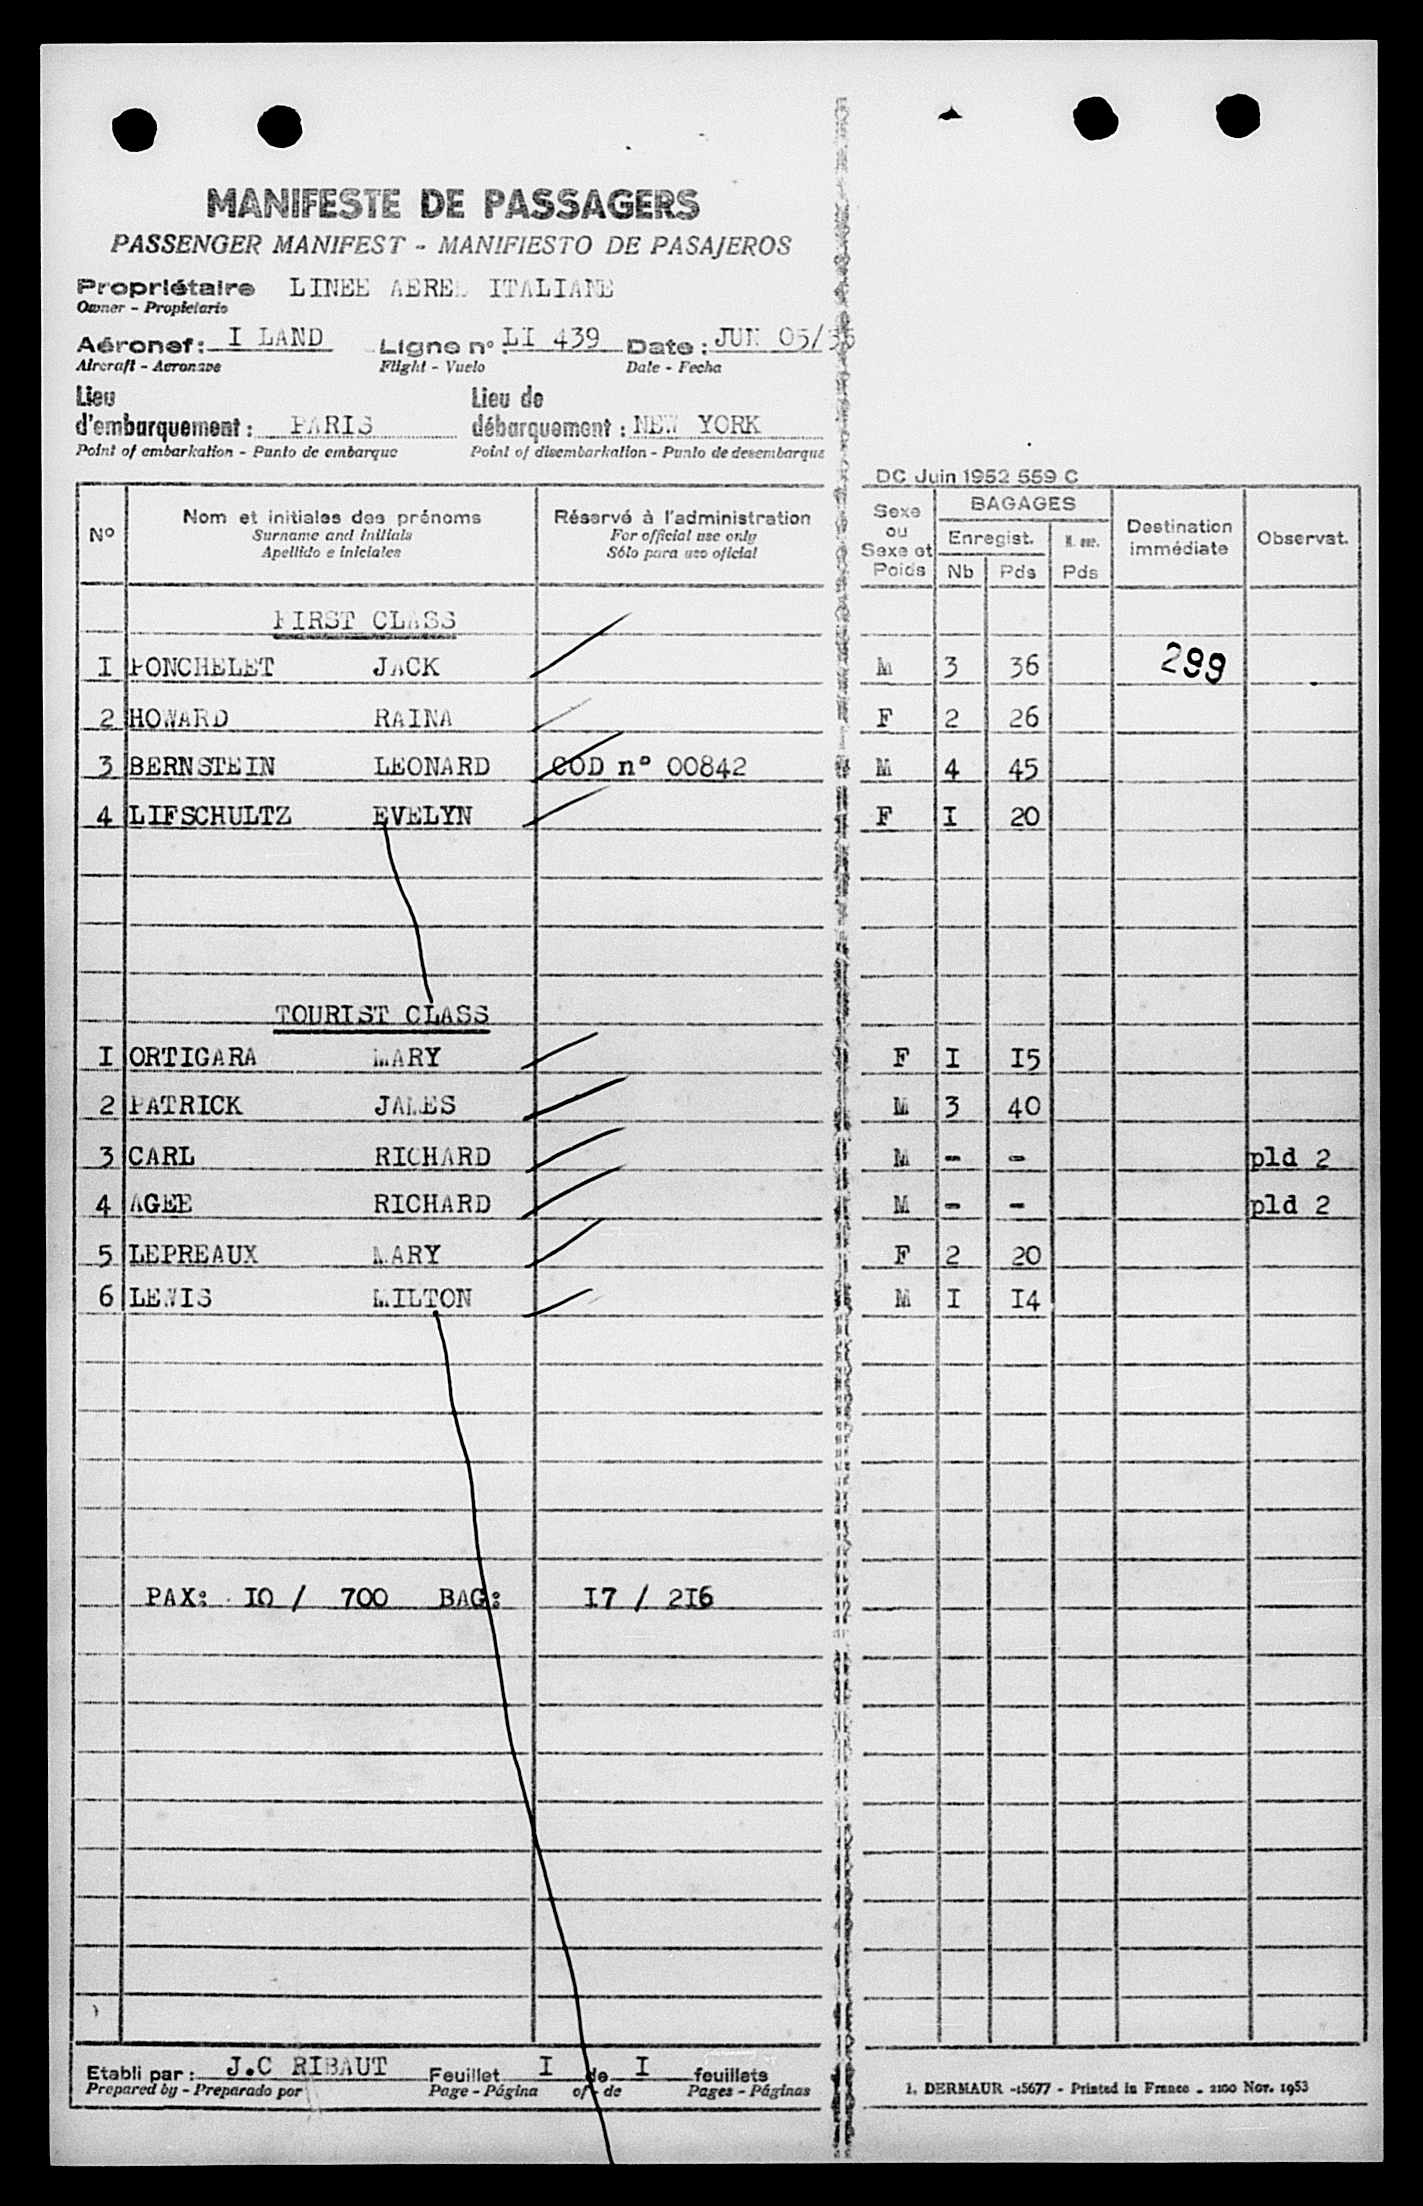 MANIFESTE DE PASSAGERS
PASSENGER MANIFEST - MANIFIESTO DE PASAJEROS
Propriétaire LINEE AEREE ITALIANE
Owner - Propietario
Aéronef: I LAND Ligne n°: LI 439 Date: JUN 05/
Aircraft - Aeronave Flight - Vuelo Date - Fecha
Lieu Lieu de
d'embarquement: PARIS débarquement: NEW YORK
Point of embarkation - Punto de embarque Point of disembarkation - Punto de desembarque
DC Juin 1952 559 C
N° Nom et initiales des prénoms Réservé à l'administration Sexe ou Sexe et Poids BAGAGES Destination immédiate Observat.
Surname and initials For official use only Enregist.
Apellido e iniciales Sólo para uso oficial Nb Pds Pds
FIRST CLASS
I PONCHELET JACK M 3 36 299
2 HOWARD RAINA F 2 26
3 BERNSTEIN LEONARD COD n° 00842 M 4 45
4 LIFSCHULTZ EVELYN F I 20
TOURIST CLASS
I ORTIGARA MARY F I I5
2 PATRICK JAMES M 3 40
3 CARL RICHARD M - - pld 2
4 AGEE RICHARD M - - pld 2
5 LEPREAUX MARY F 2 20
6 LEWIS MILTON M I I4
PAX: I0 / 700 BAG: I7 / 2I6
Etabli par: J.C RIBAUT Feuillet I de I feuillets
Prepared by - Preparado por Page - Página of - de Pages - Páginas
I. DERMAUR -15677 - Printed in France - 2100 Nov. 1953